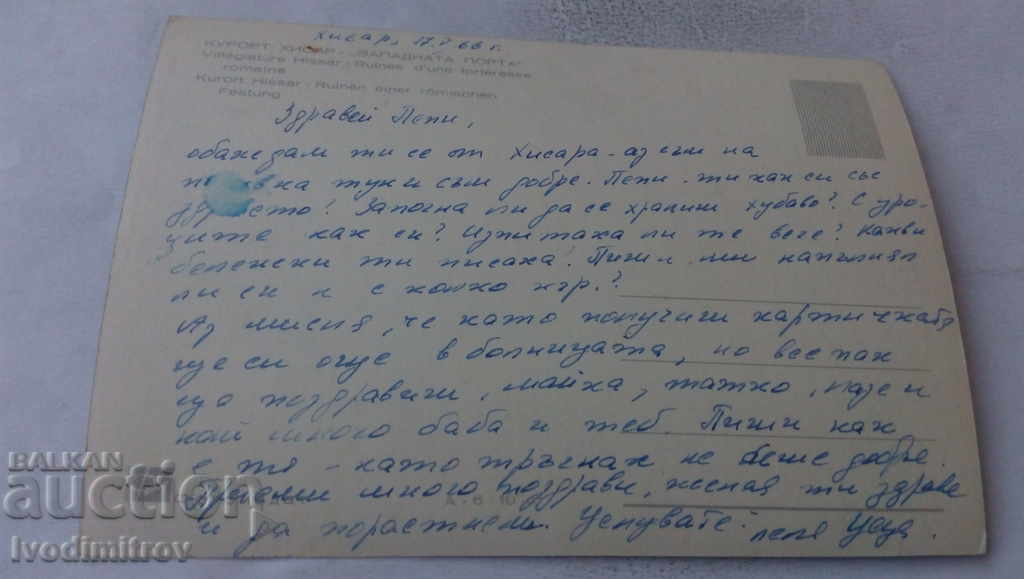 Хисар, 17.V.66 г.
КУРОРТ ХИСАР - „ЗАПАДНАТА ПОРТА“
Villegiature Hissar: Ruines d'une forteresse
romaine
Kurort Hissar: Ruinen einer römischen
Festung
Здравей Пепи,
обаждам ти се от Хисара - аз съм на
тук и съм добре. Пепи ти как си със
здравето? Започна ли да се храниш хубаво? С уро-
ците как си? Изпитаха ли те вече? Какви
бележки ти писаха? Пиши ми напълнял
ли си и с колко кгр.?
Аз мисля, че като получиш картичката
ще си още в болницата, но все пак
ще поздравиш, майка, татко, и
най много баба и теб. Пиши как
е тя - като тръгнах не беше добре.
Приеми много поздрави, желая ти здраве
и да пораснеш. Целувате: леля Цеца
BALKAN
auction
Ivodimitrov